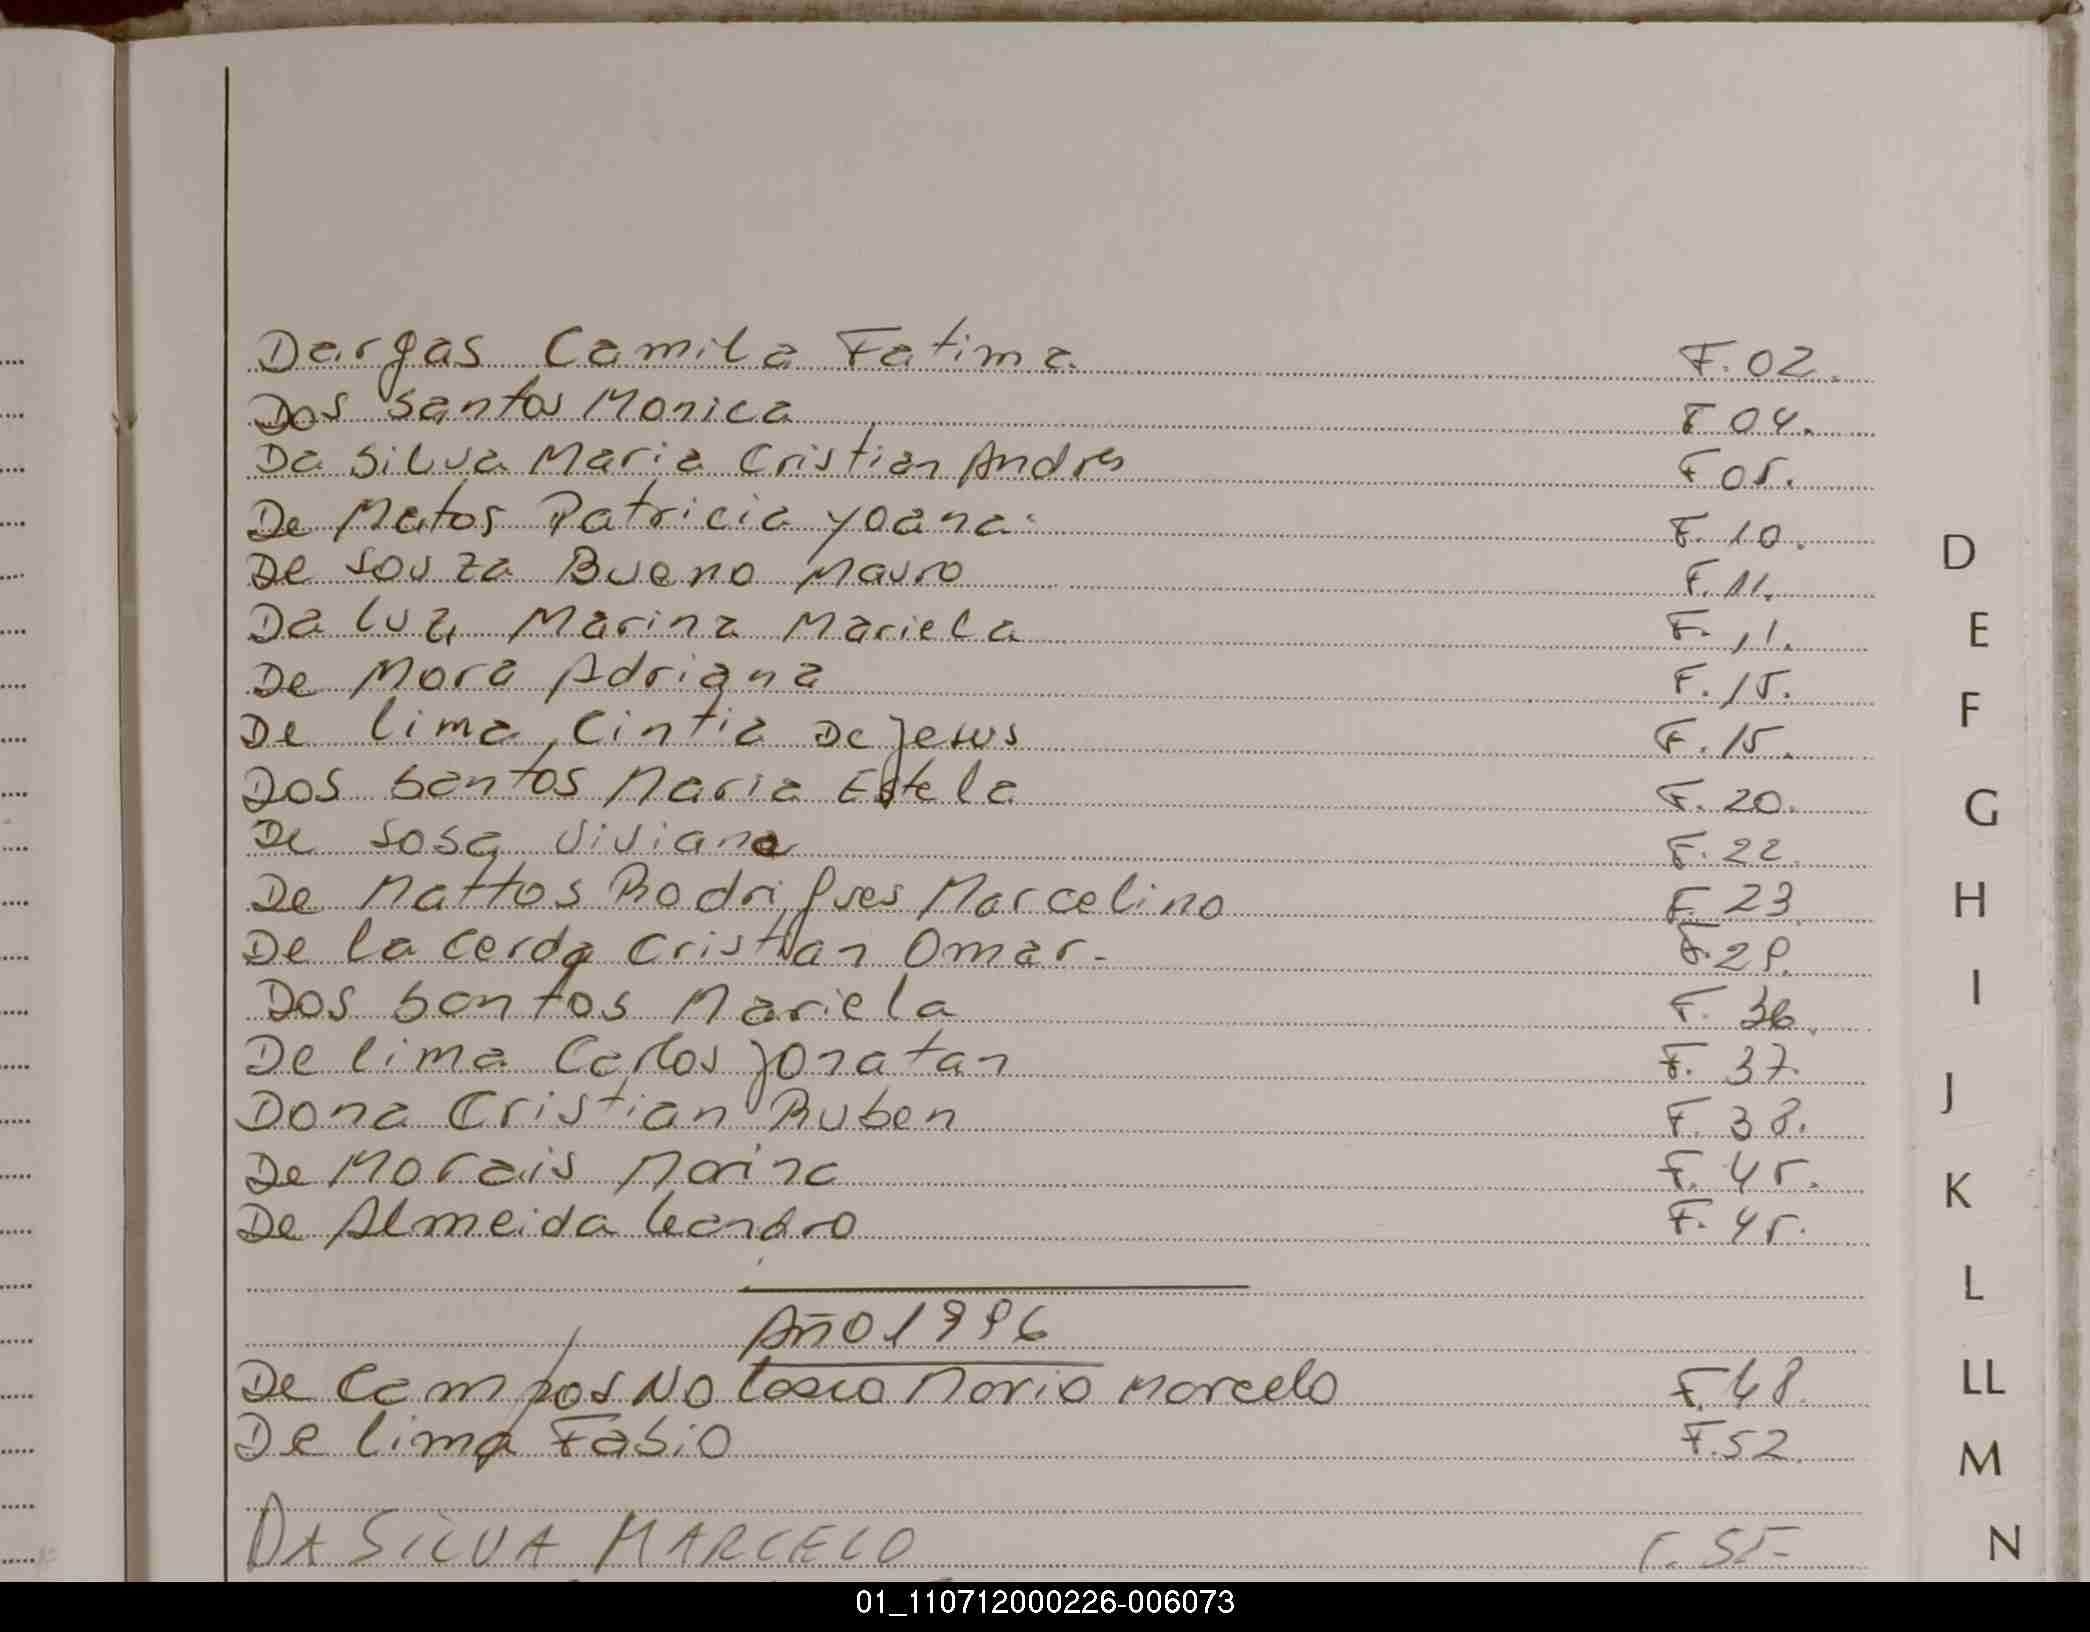 Dargas Camila Fatima F.02.
Dos Santos Monica F 04.
Da Silva Maria Cristian Andres F 05.
De Matos Patricia Yoana F. 10.
De Souza Bueno Mauro F. 11.
Da luz Marina Mariela F. 11.
De Mora Adriana F. 15.
De lima Cintia De Jesus F. 15.
Dos Santos Maria Estela F. 20.
De Sosa Viviana F. 22.
De Mattos Rodrigues Marcelino F. 23.
De la cerda Cristian Omar- F. 29.
Dos Santos Mariela F. 36.
De lima Carlos Jonatan F. 37.
Dona Cristian Ruben F. 38.
De Morais Marina F. 45.
De Almeida Leandro F. 45.
Año 1996
De Campos No Mario Marcelo F. 48.
De lima Fabio F. 52.
DA SILVA MARCELO F. 55-
D
E
F
G
H
I
J
K
L
LL
M
N
01_110712000226-006073